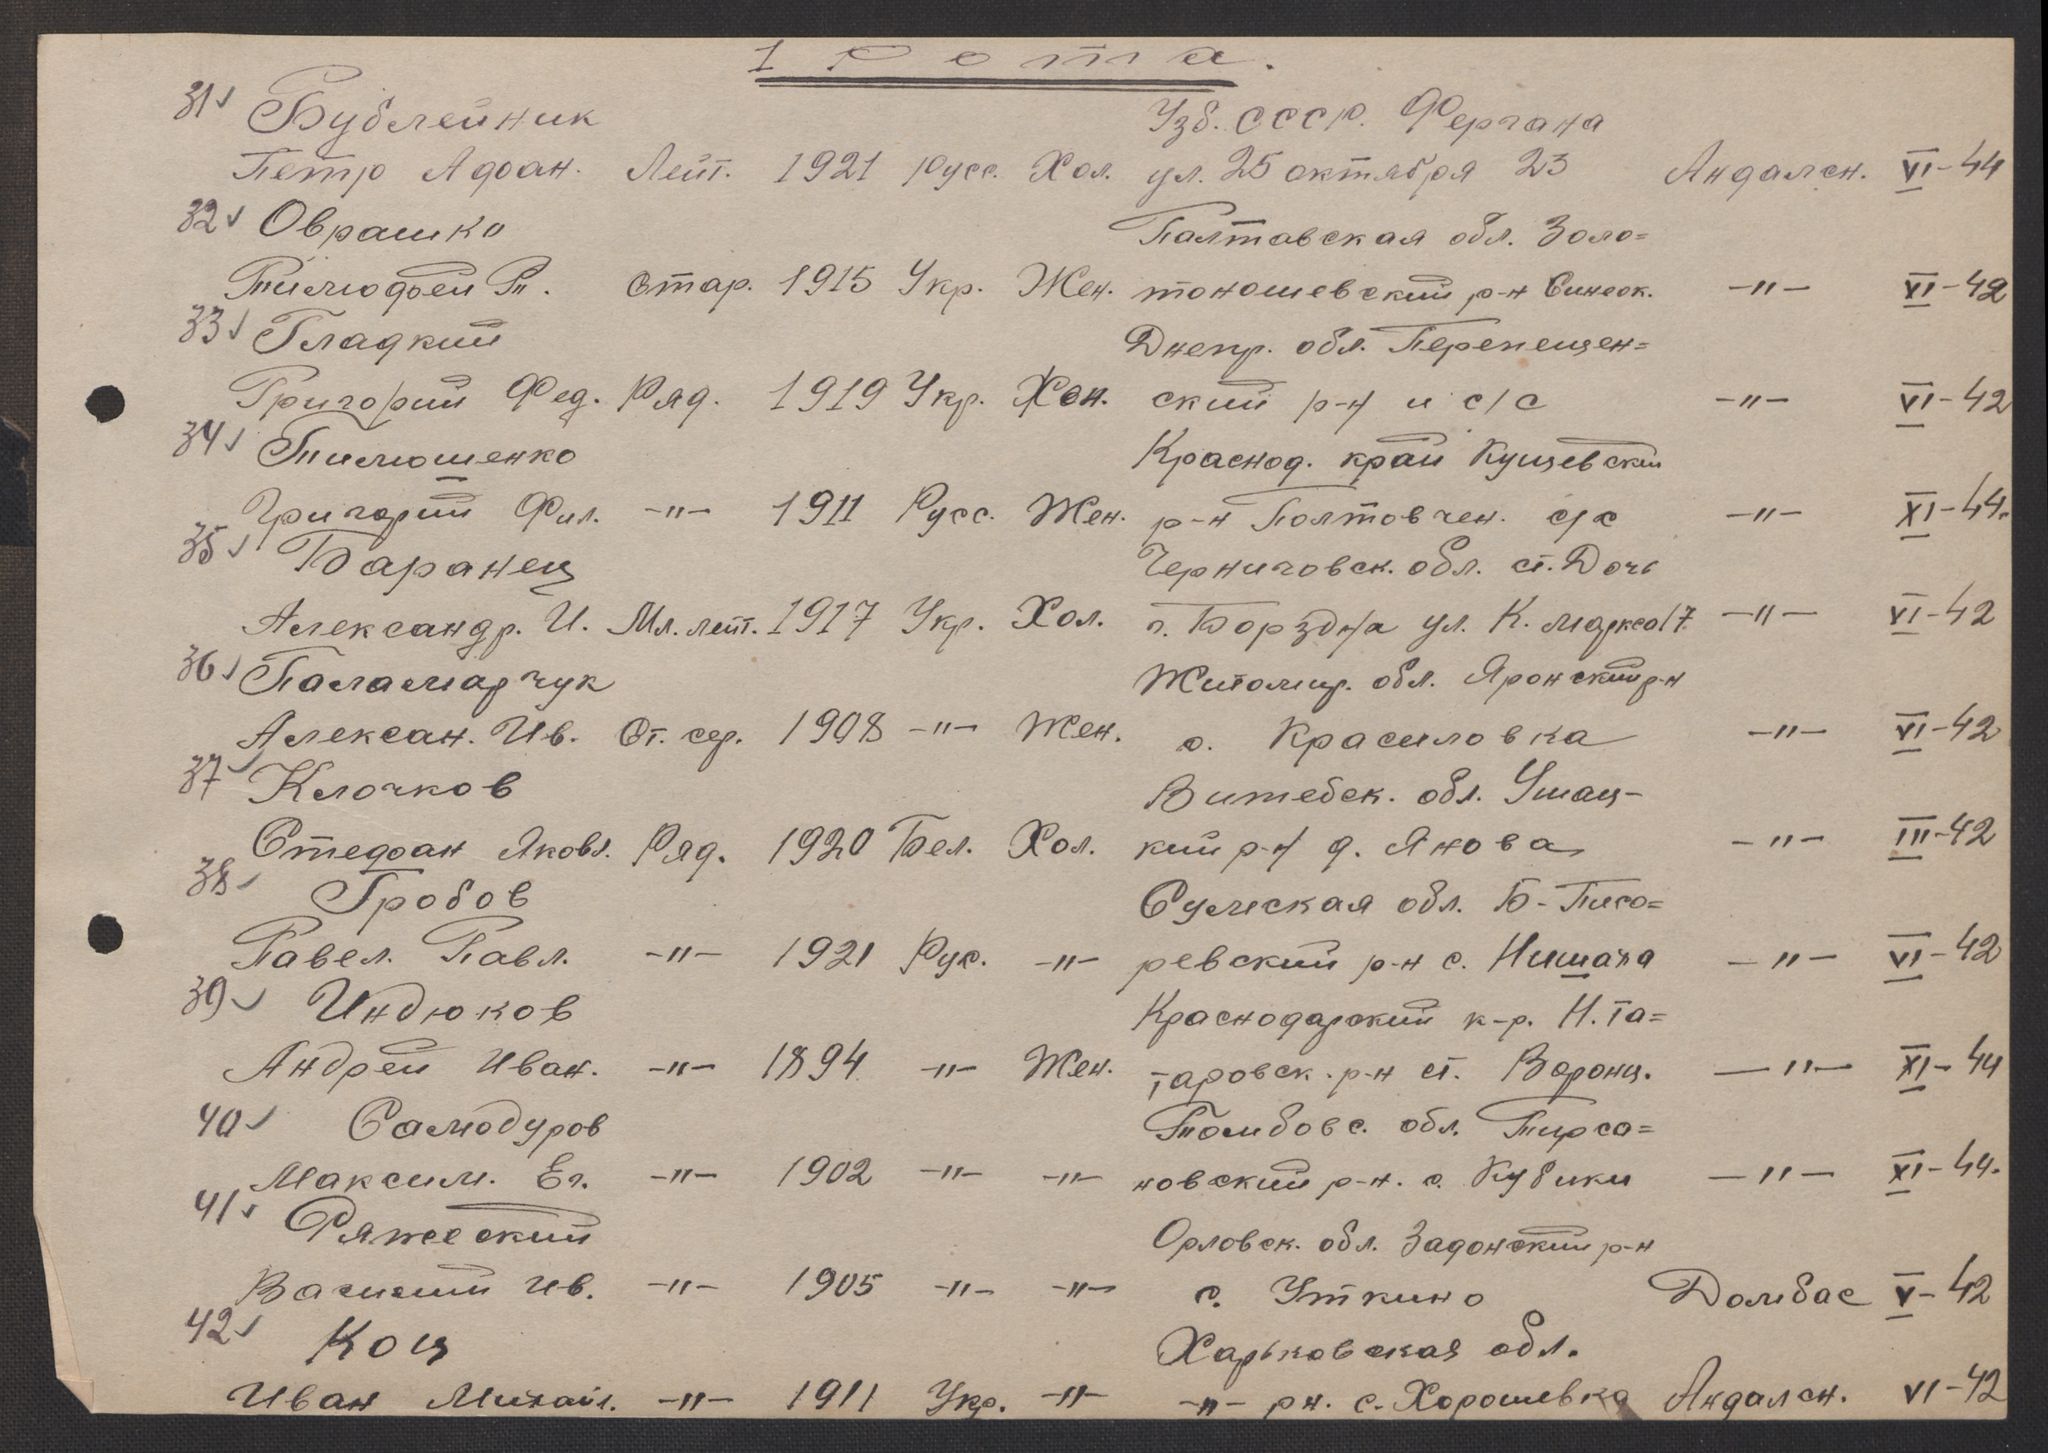 1 Рота.
31 Бублейник Узб. СССР. Фергана
Петр Афан. Лейт. 1921 Русс. Хол. ул. 25 октября 23 Андалсн. VI-44
32 Оврашко Палтавская обл. Золо=
Тимофей П. Стар. 1915 Укр. Жен. тоношевский р-н Синеок. -"- XI-42
33 Гладкий Днепр. обл. Перепещен=
Григорий Фед. Ряд. 1919 Укр. Жен. ский р-н и с/с -"- VI-42
34 Тимошенко Краснод. край Кущевский
Григорий Фил. -"- 1911 Русс. Жен. р-н Полтовчен. с/с -"- XI-44.
35 Баранец Черниговск. обл. ст. Дочь
Александр. И. Мл. лейт. 1917 Укр. Хол. г. Борздня ул. К. маркса 17 -"- VI-42
36 Паламарчук Житомир. обл. Яронский р-н
Алексан. Ив. Ст. сер. 1908 -"- Жен. с. Красиловка -"- VI-42
37 Клочков Витебск. обл. Ушац-
Стефан Яковл. Ряд. 1920 Бел. Хол. кий р-н д. Янова -"- III-42
38 Гробов Сумская обл. Б-Писо=
Павел. Павл. -"- 1921 Рус. -"- ревский р-н с. -"- VI-42
39 Индюков Краснодарский к-р. Н. Та=
Андрей Иван. -"- 1894 -"- Жен. таровск. р-н ст. Воронц. -"- XI-44
40 Самодуров Томбовс. обл. Кирса=
Максим. Ег. -"- 1902 -"- -"- новский р-н. с. Кубики -"- XI-44.
41 Ряжеский Орловск. обл. Задонский р-н
Василий Ив. -"- 1905 -"- -"- с. Уткино Домбас V-42
42 Коц Харьковская обл.
Иван Михайл. -"- 1911 Укр. -"- -"- рн. с. Хорошевка Андалсн. VI-42